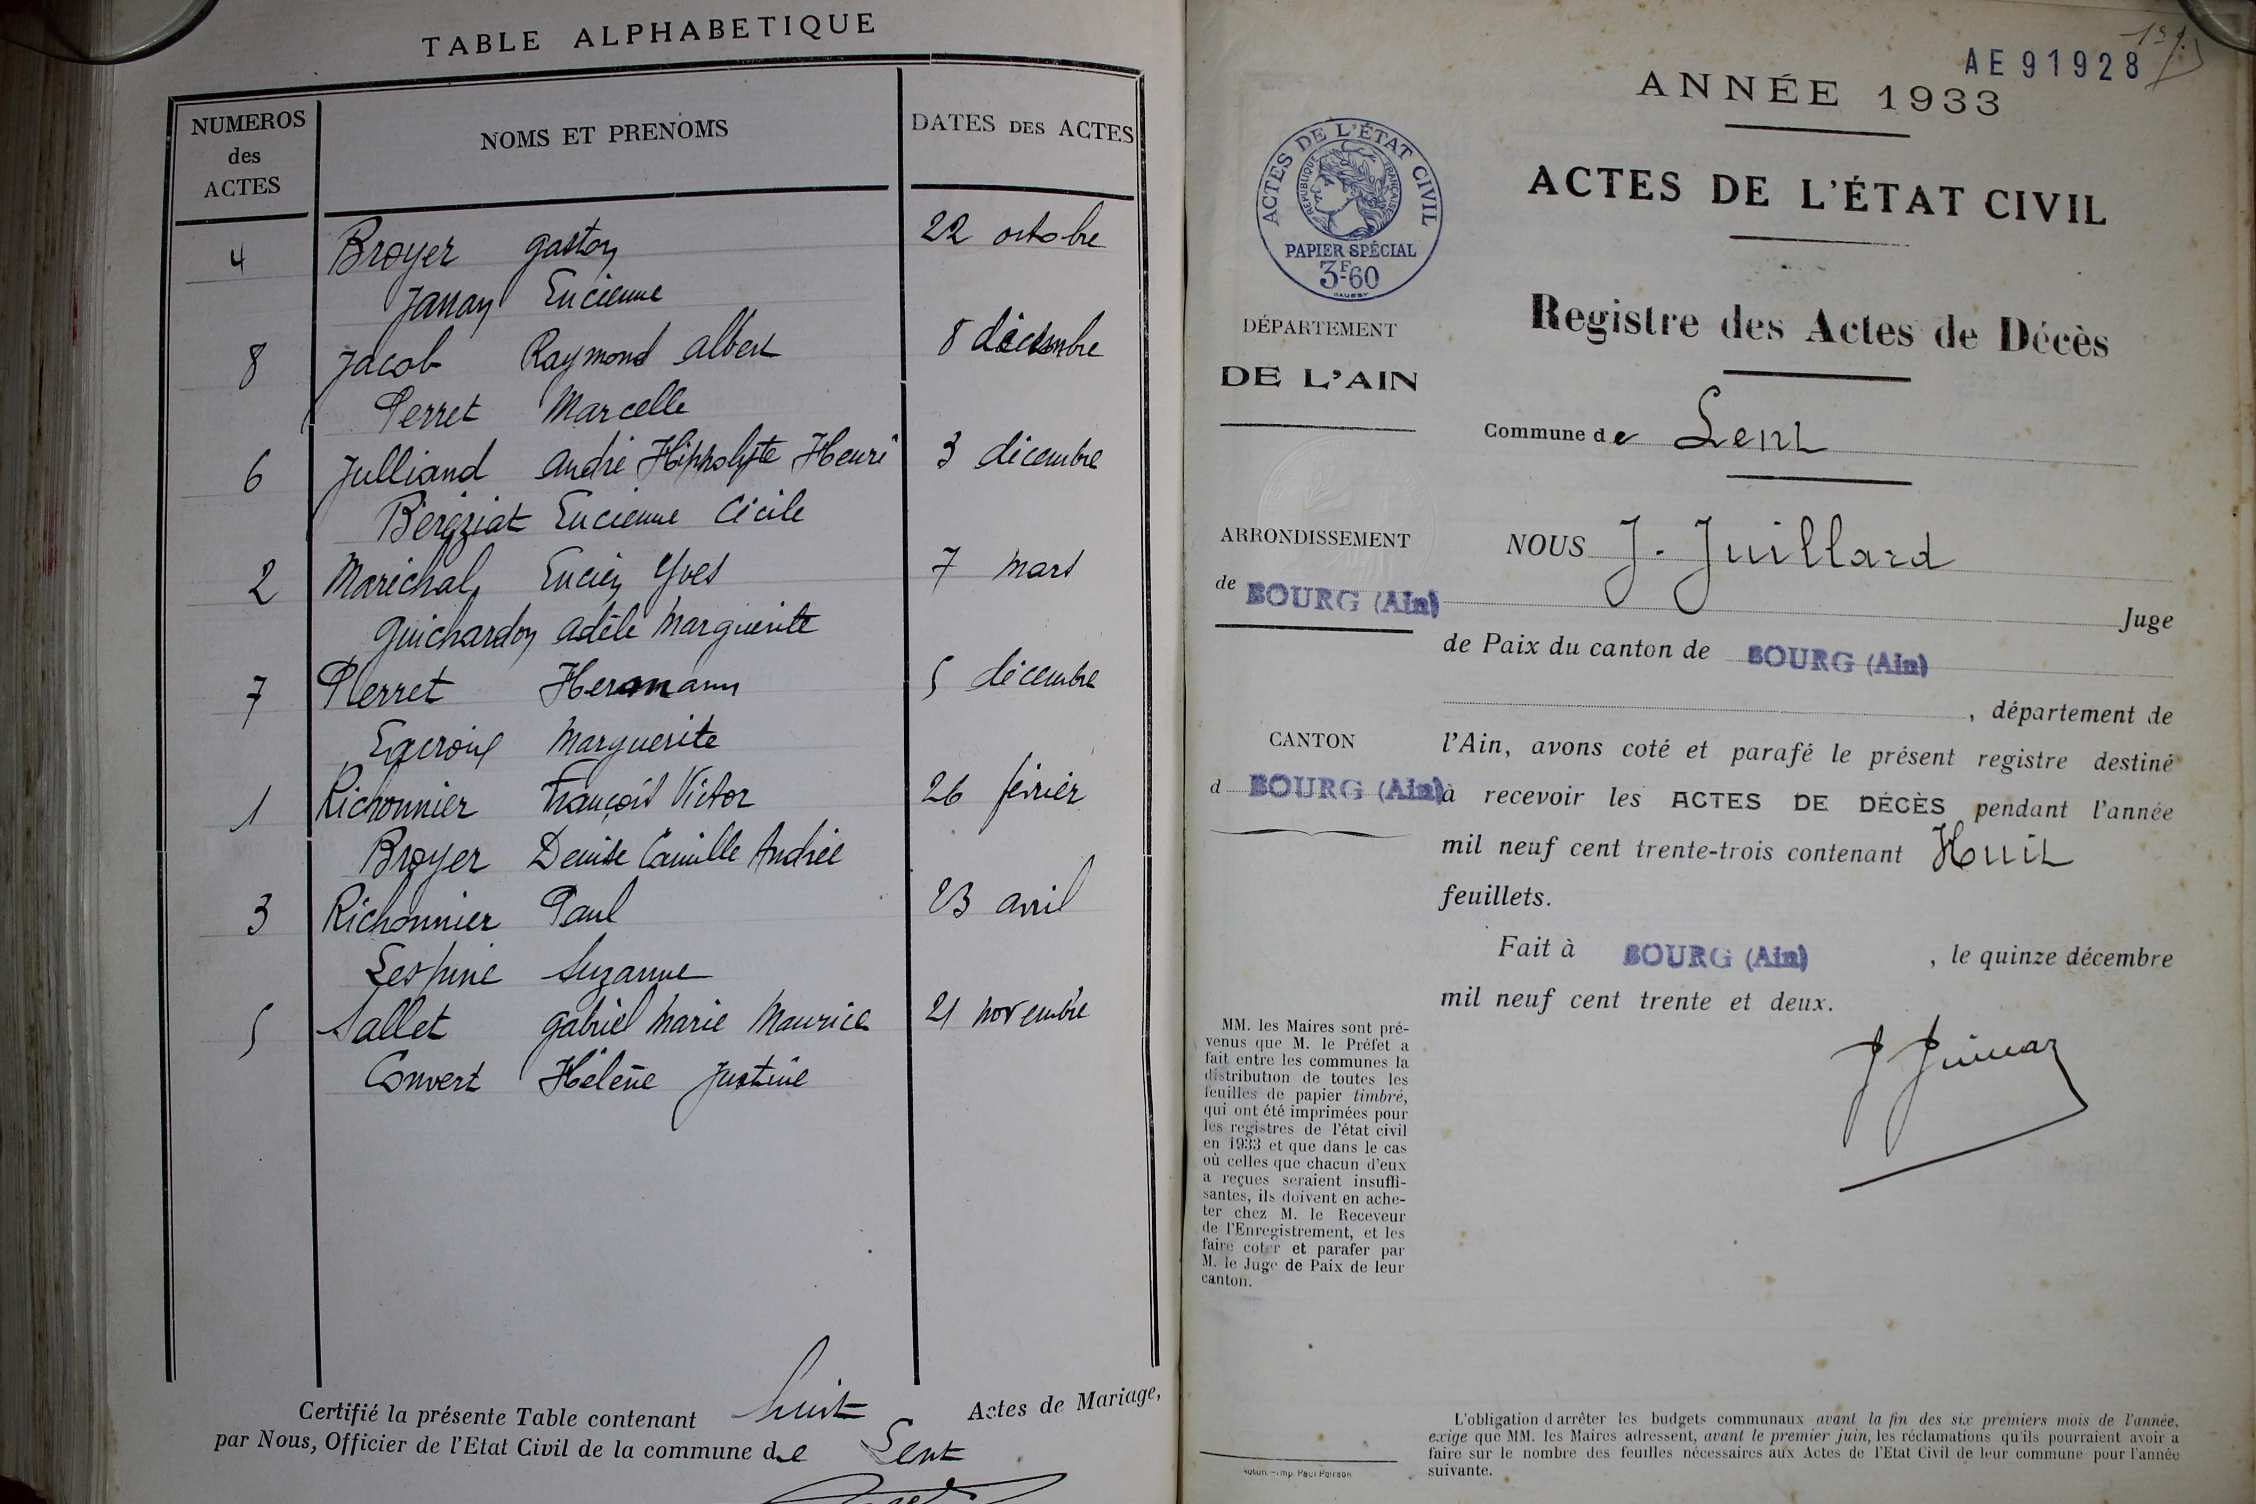 TABLE ALPHABETIQUE
NUMEROS des ACTES
NOMS ET PRENOMS
DATES DES ACTES
4 Broyer Gaston 22 octobre
Janray Lucienne
8 Jacob Raymond Albert 8 décembre
Perret Marcelle
6 Julliand André Hippolyte Henri 3 décembre
Bergziat Lucienne Cécile
2 Maréchal Lucien Yves 7 mars
Guichardon Adèle Marguerite
7 Perret Hermann 5 décembre
Lacroix Marguerite
1 Richonnier François Victor 26 février
Broyer Denise Camille Andrée
3 Richonnier Paul 23 avril
Lespine Suzanne
5 Sallet Gabriel Marie Maurice 21 novembre
Convert Hélène Justine
Certifié la présente Table contenant huit Actes de Mariage,
par Nous, Officier de l'Etat Civil de la commune de Lent
AE91928
ANNÉE 1933
ACTES DE L'ÉTAT CIVIL
RÉPUBLIQUE FRANÇAISE
PAPIER SPÉCIAL
3F60
ACTES DE L'ÉTAT CIVIL
Registre des Actes de Décès
DÉPARTEMENT
DE L'AIN
Commune de Lent
ARRONDISSEMENT
de BOURG (Ain)
CANTON
d BOURG (Ain)
NOUS J. Juillard
Juge
de Paix du canton de BOURG (Ain)
, département de
l'Ain, avons coté et parafé le présent registre destiné
à recevoir les ACTES DE DÉCÈS pendant l'année
mil neuf cent trente-trois contenant Huit
feuillets.
Fait à BOURG (Ain) , le quinze décembre
mil neuf cent trente et deux.
MM. les Maires sont pré-
venus que M. le Préfet a
fait entre les communes la
distribution de toutes les
feuilles de papier timbré,
qui ont été imprimées pour
les registres de l'état civil
en 1933 et que dans le cas
où celles que chacun d'eux
a reçues seraient insuffi-
santes, ils doivent en ache-
ter chez M. le Receveur
de l'Enregistrement, et les
faire coter et parafer par
M. le Juge de Paix de leur
canton.
L'obligation d'arrêter les budgets communaux avant la fin des six premiers mois de l'année,
exige que MM. les Maires adressent, avant le premier juin, les réclamations qu'ils pourraient avoir à
faire sur le nombre des feuilles nécessaires aux Actes de l'Etat Civil de leur commune pour l'année
suivante.